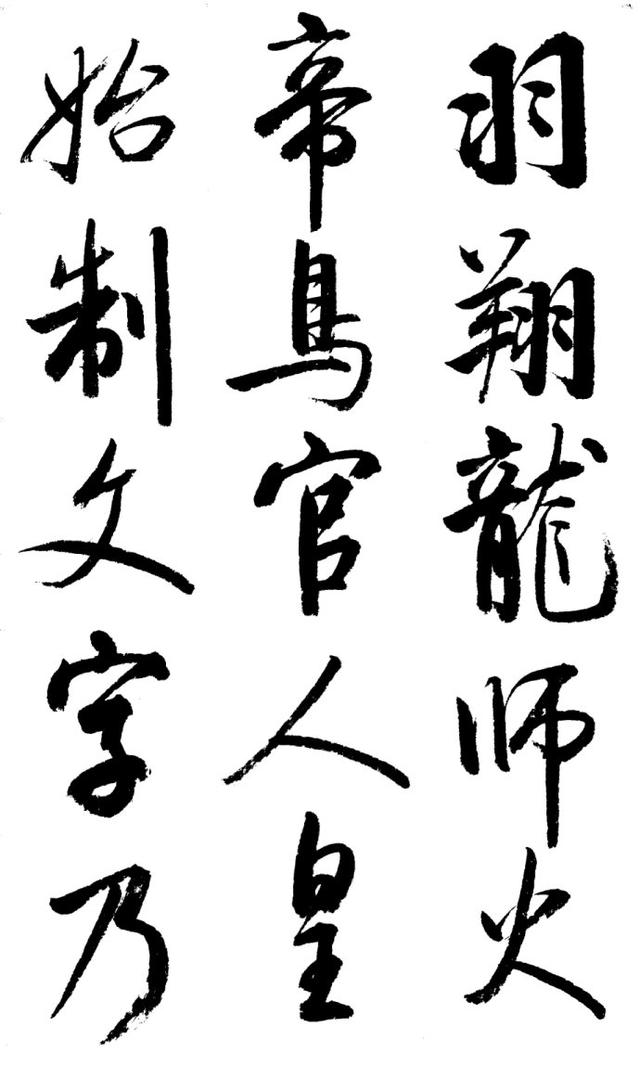 羽翔龍师火
帝鳥官人皇
始制文字乃